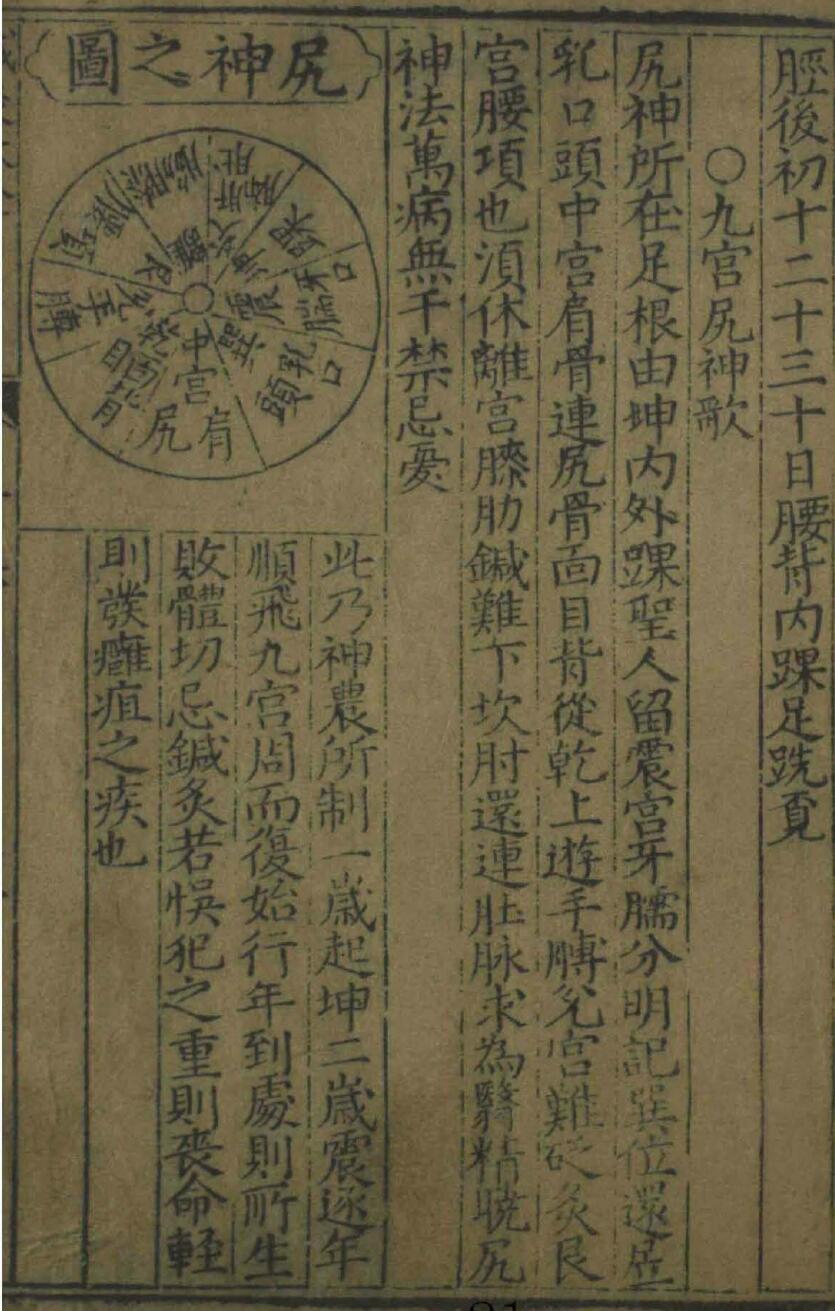 脛後初十二十三十日腰背内踝足跣覔
○九宫尻神歌
尻神所在足根由坤内外踝聖人留震宫牙腨分明記巽位還是
乳口頭中宫肩骨連尻骨面目背從乾上遊手膊兊宫難砭灸艮
宫腰項也湏休離宫膝肋鍼難下坎肘還連肚脉求為醫精曉尻
神法萬病無干禁忌憂
尻神之圖
離
坤
震
巽
中宫
艮
兊
乳頭
口
肩尻
手膊
背目
面
踝
牙腨
口
肘肚
此乃神農所制一歲起坤二歲震逐年
順飛九宫周而復始行年到處則所生
敗體切忌鍼灸若悞犯之重則喪命輕
則發癰疽之疾也